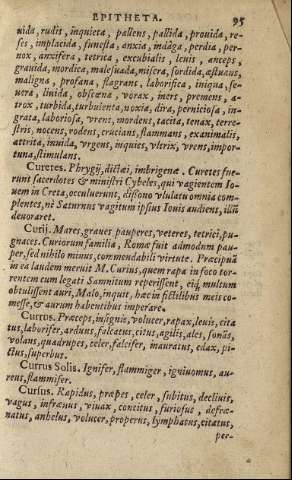 EPITHETA. 95
uida, rudis, inquieta, pallens, pallida, prouida, re-
ses, implacida, funesta, anxia, mdaga, perdia, per-
nox, anxifera, tetrica, excubialis, leuis, anceps,
grauida, mordica, malesuada, misera, sordida, æstuans,
maligna, profana, flagrans, laborifica, iniqua, se-
uera, liuida, obscæna, vorax, iners, premens, a-
trox, turbida, turbulenta, noxia, dira, perniciosa, in-
grata, laboriosa, vrens, mordens, tacita, tenax, terre-
stris, nocens, rodens, crucians, flammans, exanimalis,
attrita, inuida, vrgens, inquies, vltrix, vrens, impor-
tuna, stimulans.
Curetes. Phrygij, dictæi, imbrigenæ. Curetes fue-
runt sacerdotes & ministri Cybeles, qui vagientem Io-
uem in Creta, occuluerunt, dissono vlulatu omnia com-
plentes, ni Saturnus vagitum ipsius Iouis audiens, illū
deuoraret.
Curij. Mares, graues pauperes, veteres, tetrici, pu-
gnaces. Curiorum familia, Romæ fuit admodum pau-
per, sed nihilo minus, commendabili virtute. Præcipuā
in ea laudem meruit M. Curius, quem rapa in foco tor-
rentem cum legati Samnitum reperissent, eiq́; multum
obtulissent auri, Malo, inquit, hæc in fictilibus meis co-
messe, & aurum habentibus imperare.
Currus. Præceps, insignis, volucer, rapax, leuis, cita
tus, laborifer, arduus, falcatus, citus, agilis, ales, sonās,
volans, quadrupes, celer, falcifer, inauratus, edax, pi-
ctus, superbus.
Currus Solis. Ignifer, flammiger, igniuomus, au-
reus, flammifer.
Cursus. Rapidus, præpes, celer, subitus, decliuis,
vagus, infrænus, viuax, concitus, furiosus, defræ-
natus, anhelus, volucer, properus, lymphatus, citatus,
per-